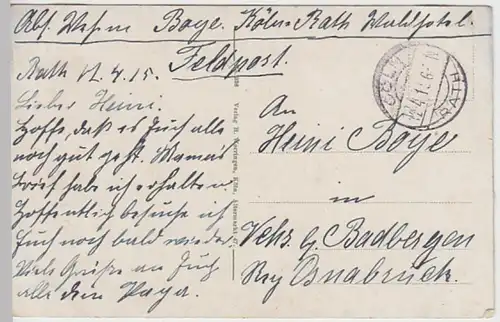 Abs. Wehrm Boye. Köln-Rath Waldhotel.
Feldpost.
Rath 12.4.15.
Lieber Heini.
Hoffe, daß es Euch alle
noch gut geht. Mama's
Brief habe ich erhalten.
Hoffentlich besuche ich
Euch noch bald wieder.
Viele Grüße an Euch
alle dein Papa.
An
Heini Boye
in
Vehs b. Badbergen
Bez Osnabrück.
CÖLN
RATH
Verlag H. Cöln,